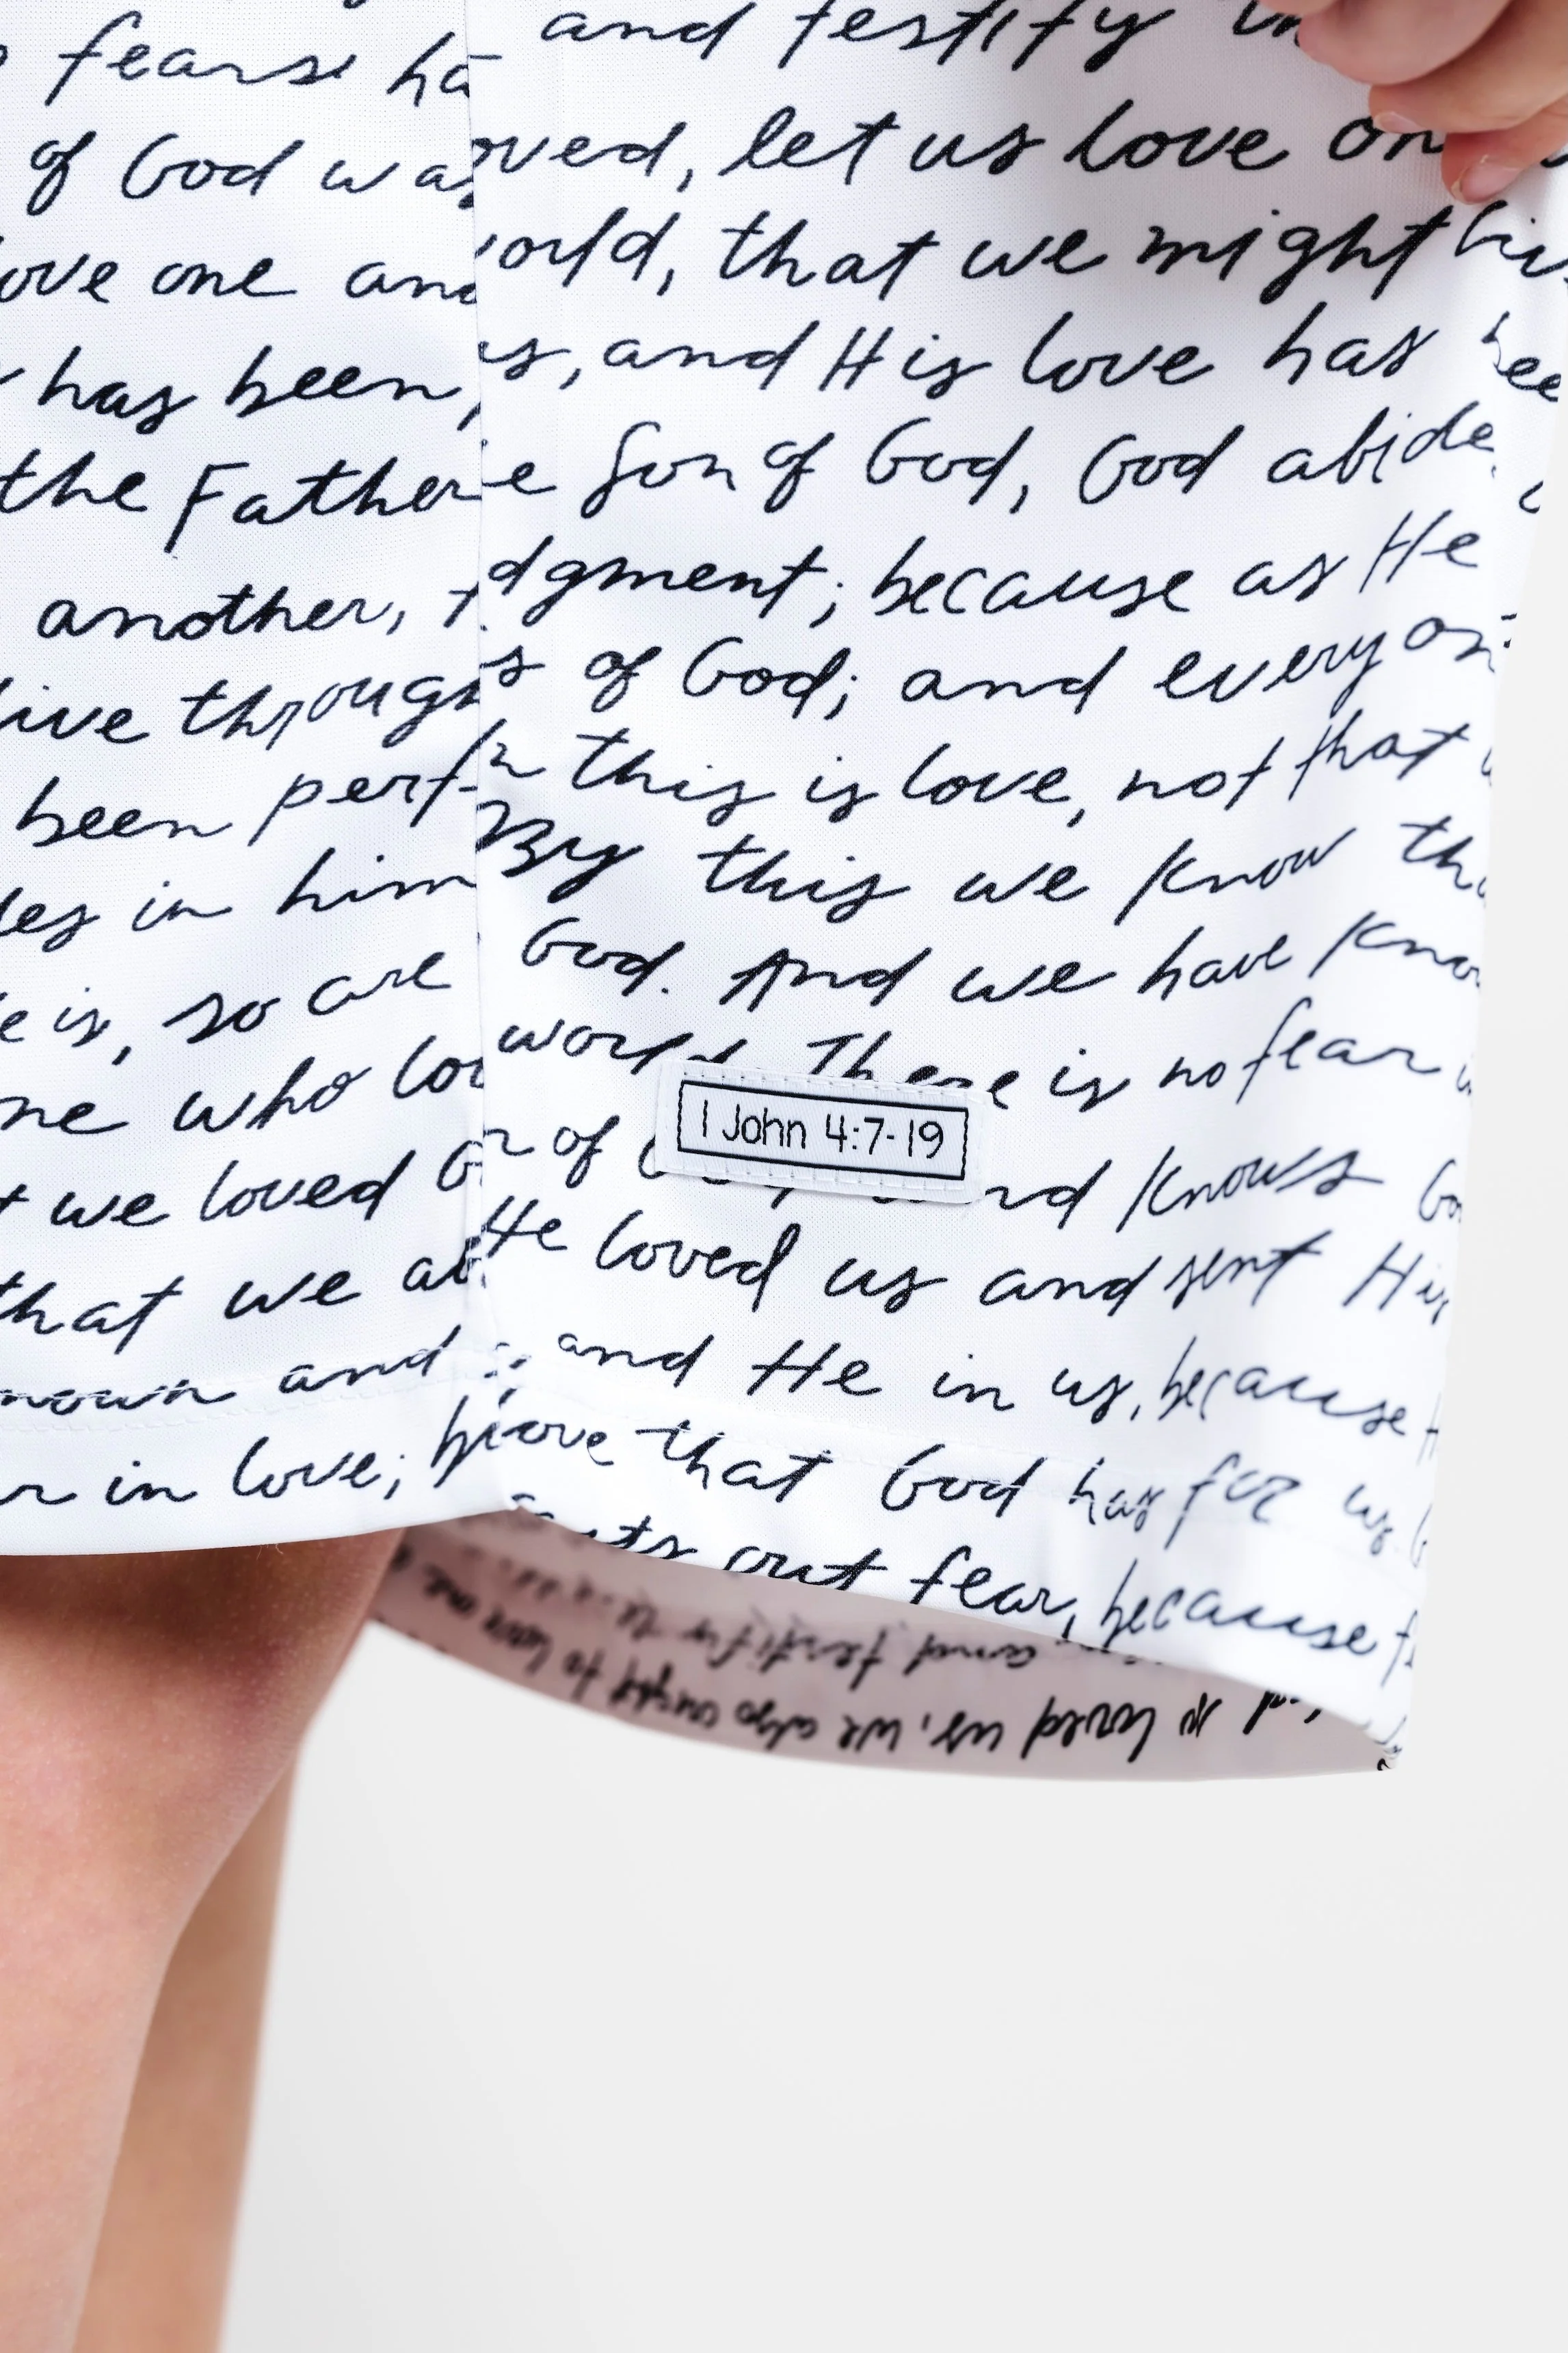 fears ha
of God was
ove one and
has been,
the Father
another, t
live through
been perf
des in him
e is, so are
ne who lov
t we loved G
that we ab
nown and
r in love;
and testify
oved, let us love on
orld, that we might liv
us, and His love has bee
e Son of God, God abide
dgment; because as He
s of God; and every on
n this is love, not that
By this we know tha
God. And we have know
world. There is no fear
1 John 4:7-19
of nd knows Go
He loved us and sent His
and He in us, because
ove that God has for us.
asts out fear, because f
and testify
loved us, we also ought to love one